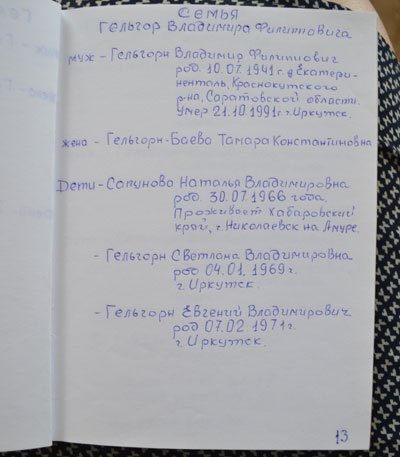 Семья
Гельгор Владимира Филиповича.
муж - Гельгорн Владимир Филиппович
род. 10.07.1941г. д Екатери-
ненталь, Краснокутского
р-на, Саратовской области.
Умер 21.10.1991г. г. Иркутск.
жена - Гельгорн-Баева Тамара Константиновна
Дети - Сапунова Наталья Владимировна
род. 30.07.1966 года.
Проживает Хабаровский
край, г. Николаевск на Амуре.
- Гельгорн Светлана Владимировна
род 04.01.1969г.
г. Иркутск.
- Гельгорн Евгений Владимирович
род 07.02.1971г.
г. Иркутск.
13